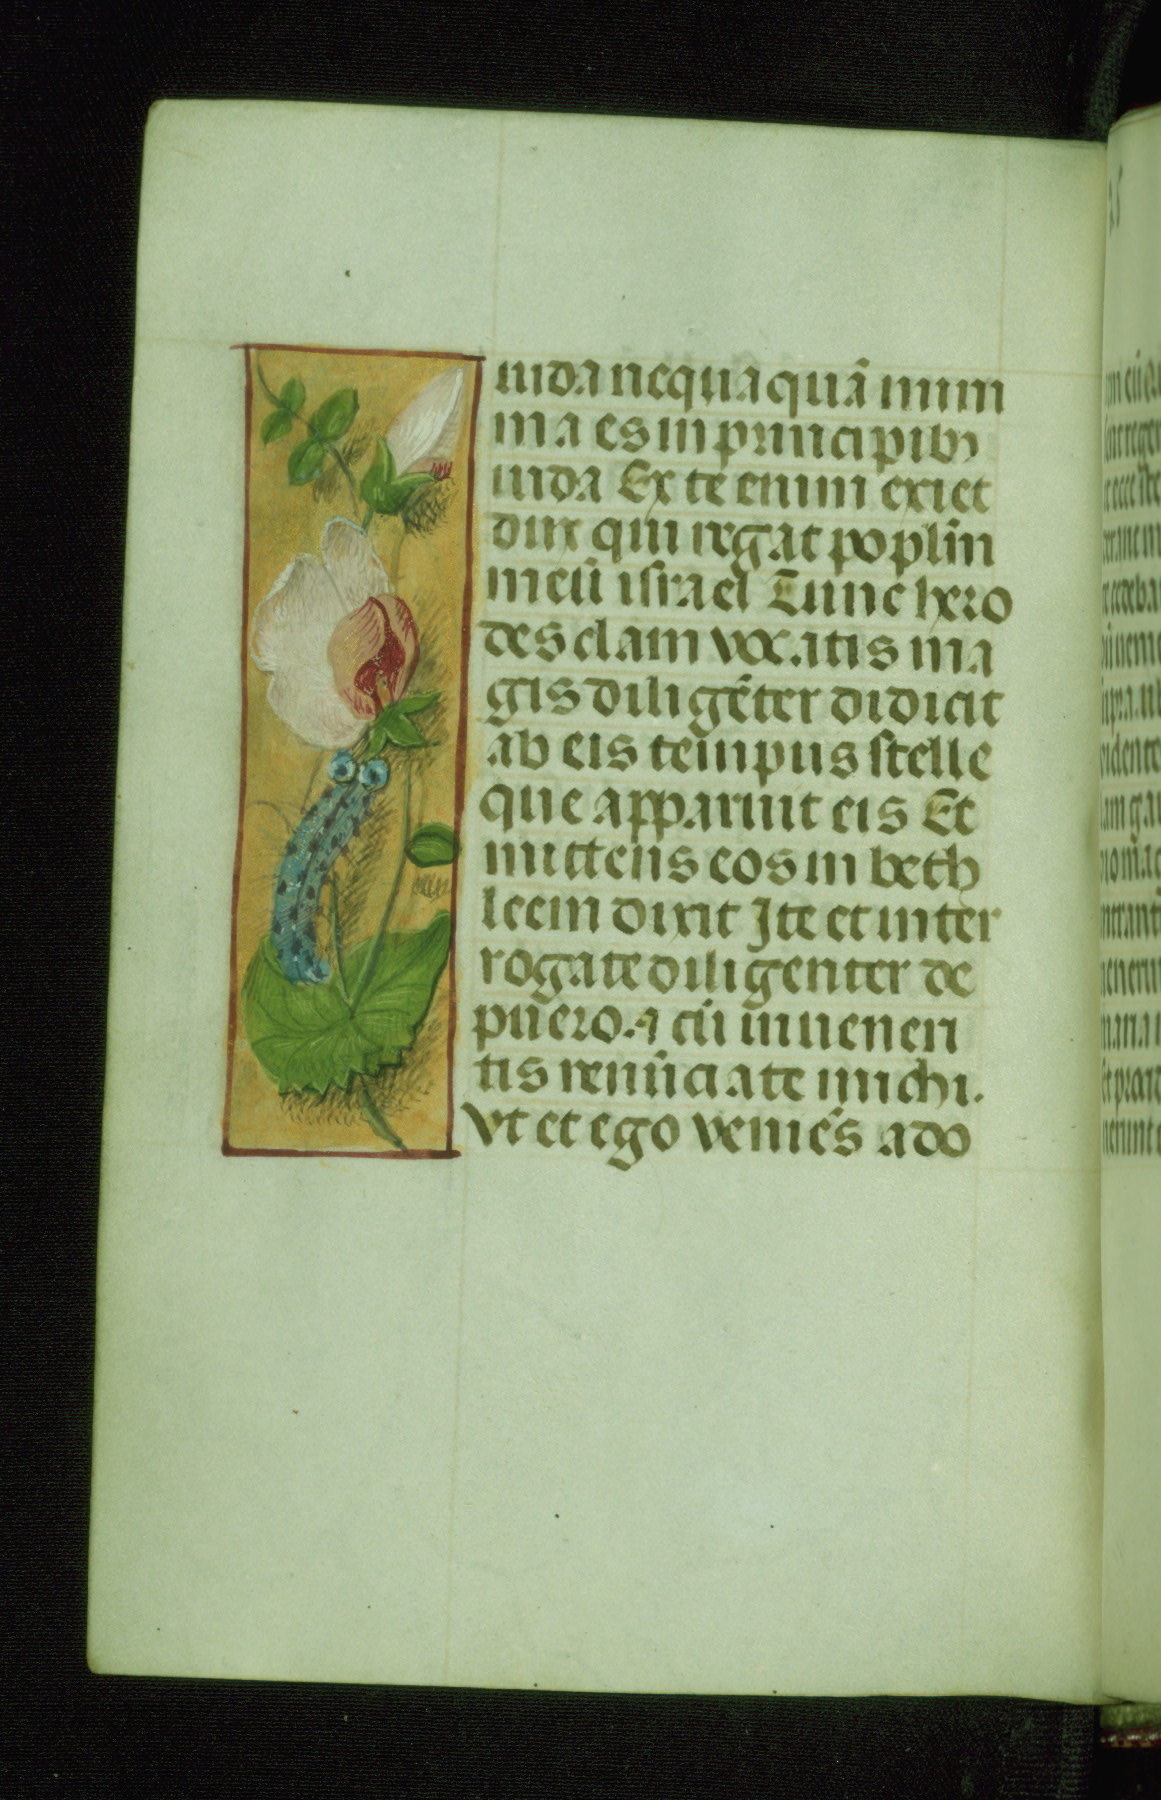 iuda nequaquā mini
ma es in principibꝫ
iuda Ex te enim exiet
dux qui regat popl̄m
meū israel Tunc hero
des clam vocatis ma
gis diligēter didicit
ab eis tempus stelle
que apparuit eis Et
mittens eos in beth
leem dixit Ite et inter
rogate diligenter de
puero. ⁊ cū inueneri
tis renūciate michi.
vt et ego veniēs ado